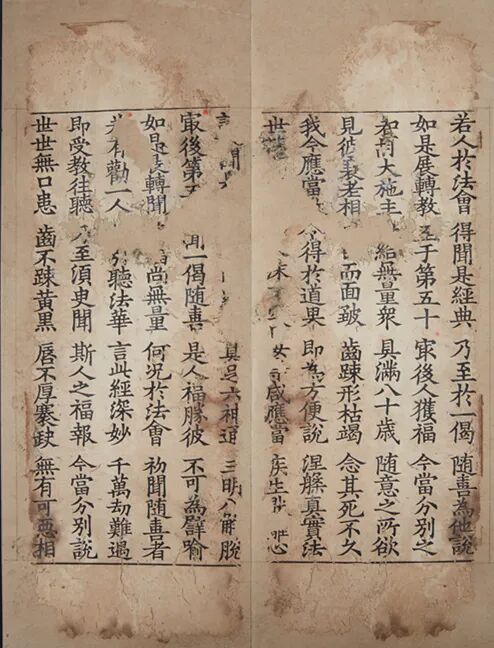 若人於法會 得聞是經典 乃至於一偈 隨喜為他說
如是展轉教 至于第五十 冣後人獲福 今當分別之
如有大施主 給無量衆 具滿八十歲 隨意之所欲
見彼衰老相 而面皺 齒踈形枯竭 念其死不久
我今應當 令得於道果 即為方便說 涅槃真實法
世 沫 咸應當 疾生
聞 具足六神通 三明八解脫
冣後第五 聞一偈隨喜 是人福勝彼 不可為譬喻
如是展轉聞 尚無量 何況於法會 初聞隨喜者
若有勸一人 聽法華 言此經深妙 千萬劫難遇
即受教往聽 乃至須臾聞 斯人之福報 今當分別說
世世無口患 齒不踈黃黑 脣不厚褰缺 無有可惡相